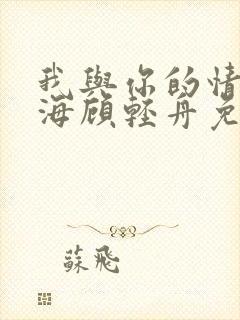 我與你的情
海顧輕舟免
蘇飛